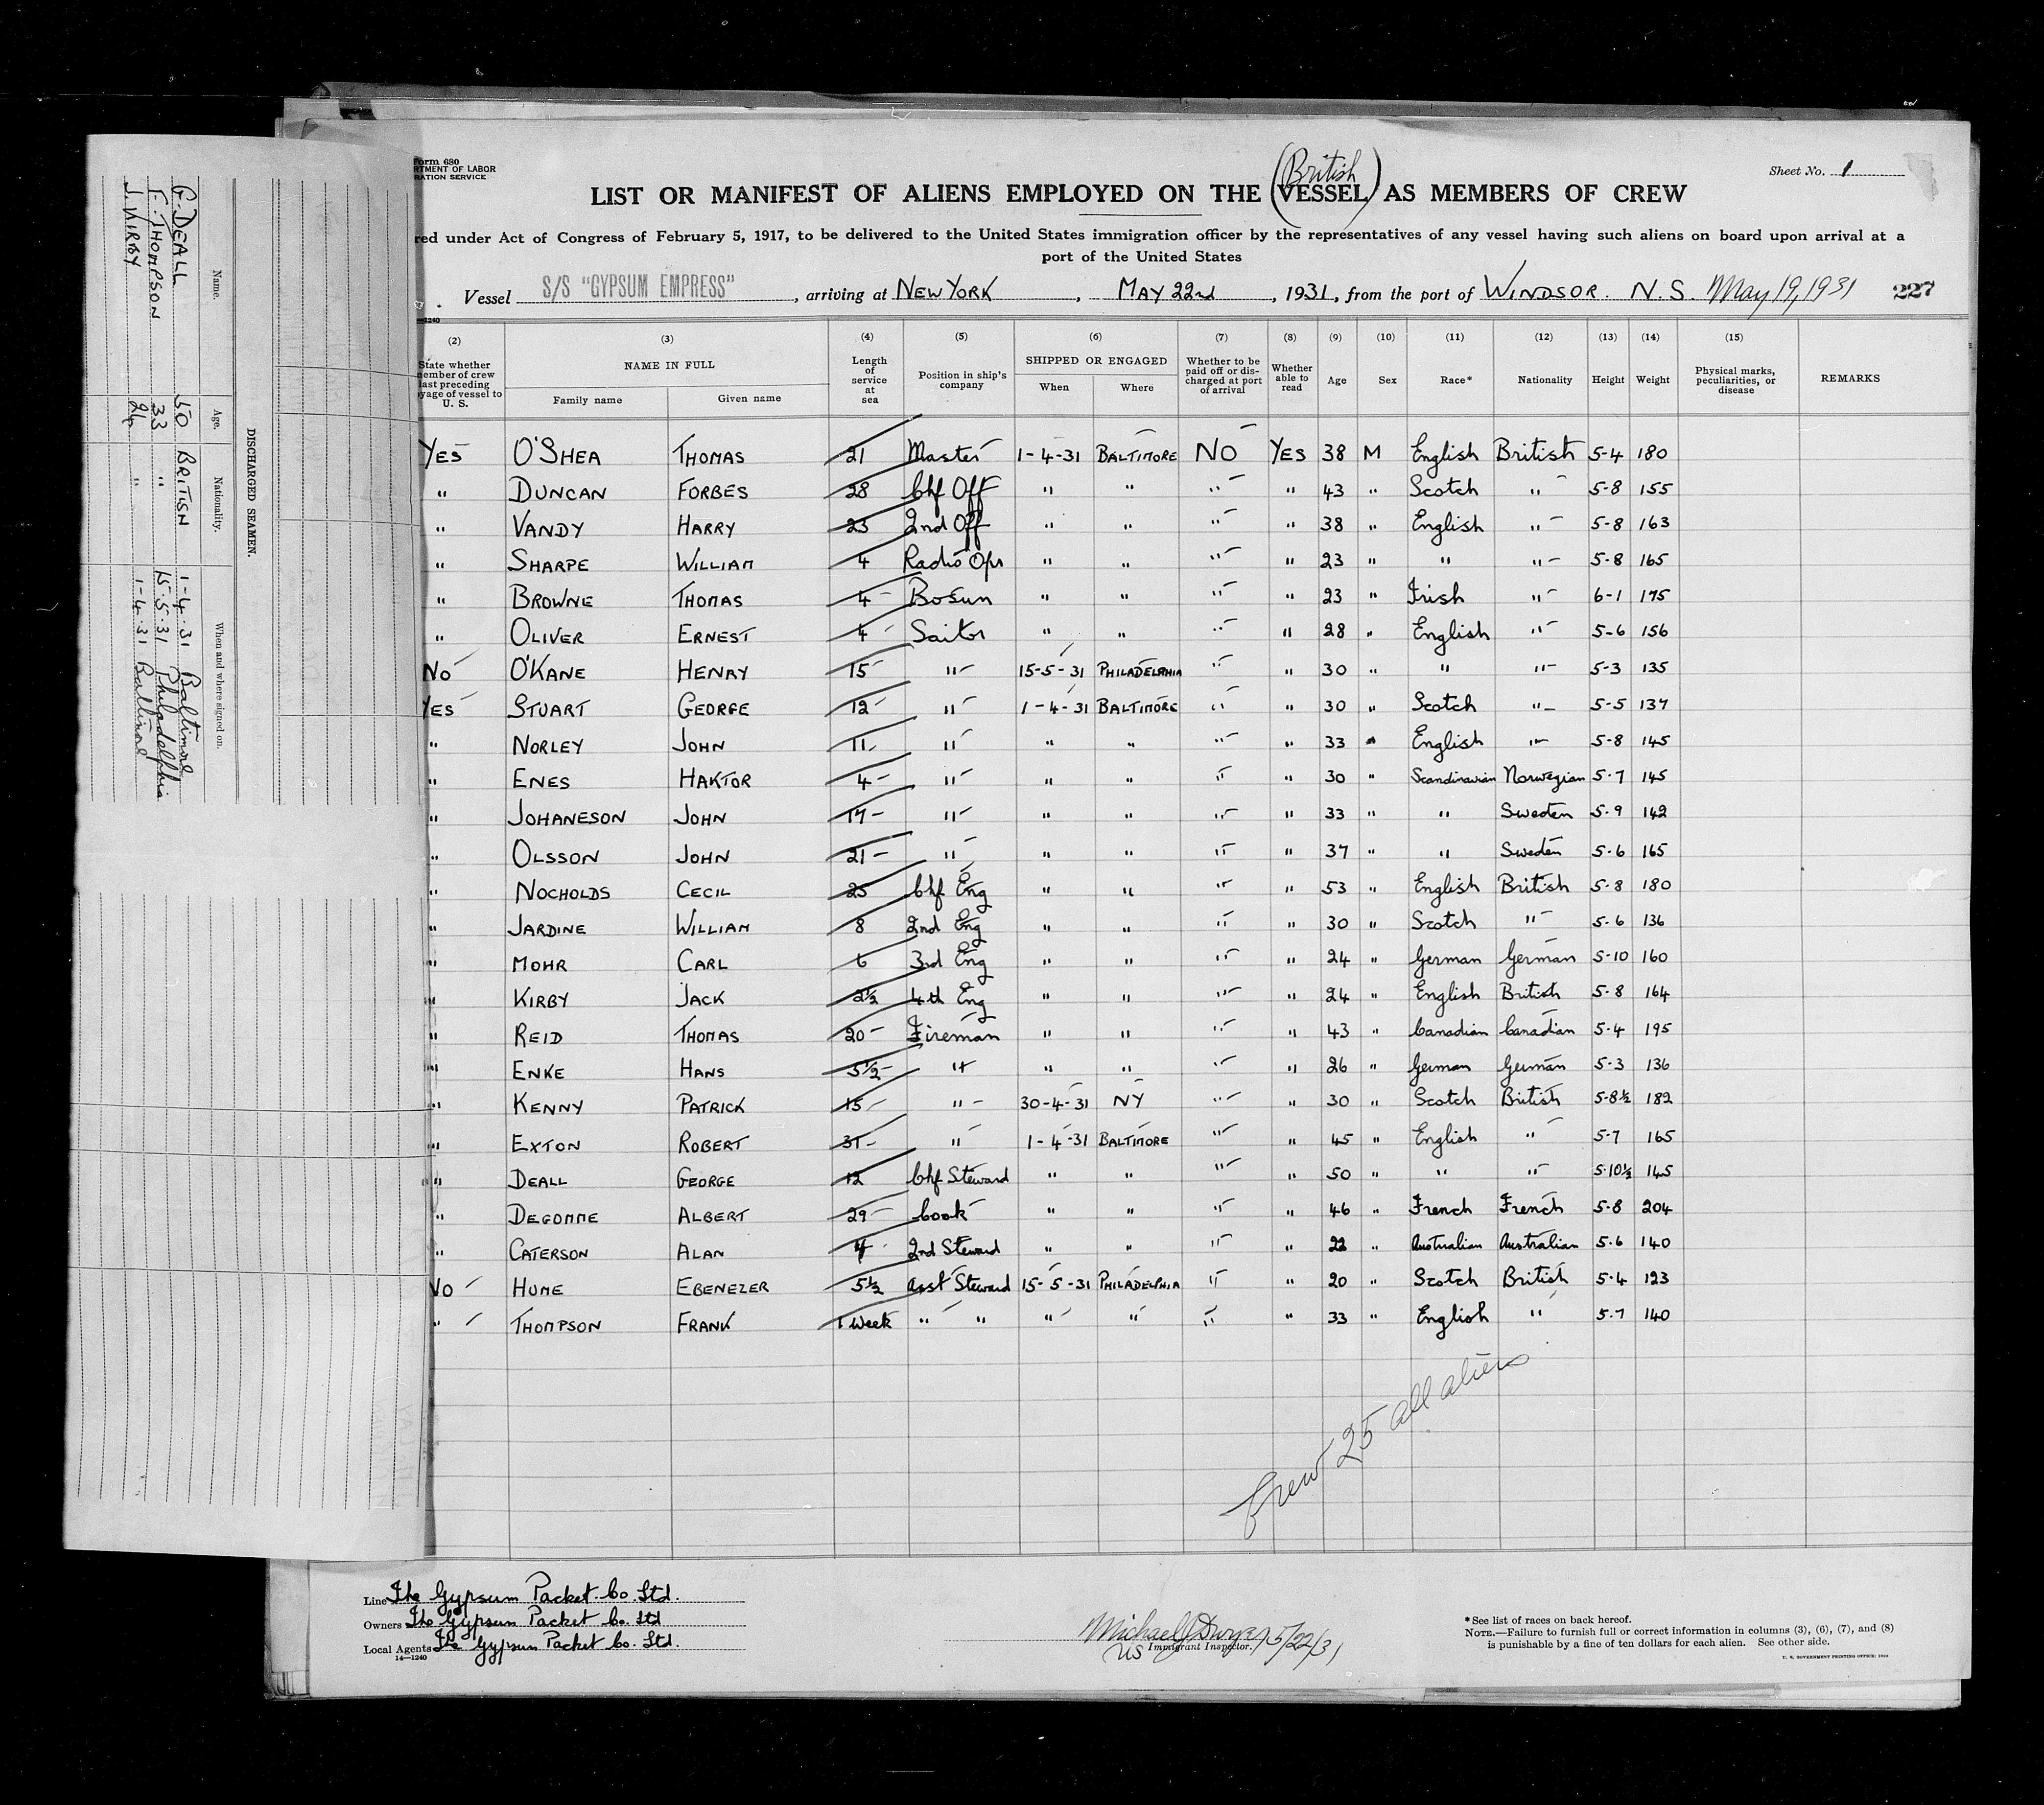 Form 680
RTMENT OF LABOR
RATION SERVICE
Sheet No. 1
(British)
LIST OR MANIFEST OF ALIENS EMPLOYED ON THE VESSEL AS MEMBERS OF CREW
red under Act of Congress of February 5, 1917, to be delivered to the United States immigration officer by the representatives of any vessel having such aliens on board upon arrival at a
port of the United States
Vessel S/S "GYPSUM EMPRESS", arriving at NEW YORK, MAY 22nd, 1931, from the port of WINDSOR. N.S. May 19, 1931 227
(2) (3) (4) (5) (6) (7) (8) (9) (10) (11) (12) (13) (14) (15)
State whether member of crew last preceding yage of vessel to U. S. NAME IN FULL Family name Given name Length of service at sea Position in ship's company SHIPPED OR ENGAGED When Where Whether to be paid off or discharged at port of arrival Whether able to read Age Sex Race* Nationality Height Weight Physical marks, peculiarities, or disease REMARKS
YES O'SHEA THOMAS 21 Master 1-4-31 BALTIMORE NO YES 38 M English British 5-4 180
" DUNCAN FORBES 28 Chf Off " " " " 43 " Scotch " 5-8 155
" VANDY HARRY 23 2nd Off " " " " 38 " English " 5-8 163
" SHARPE WILLIAM 4 Radio Opr " " " " 23 " " " 5-8 165
" BROWNE THOMAS 4 Bosun " " " " 23 " Irish " 6-1 175
" OLIVER ERNEST 4 Sailor " " " " 28 " English " 5-6 156
NO O'KANE HENRY 15 " 15-5-31 PHILADELPHIA " " 30 " " " 5-3 135
YES STUART GEORGE 12 " 1-4-31 BALTIMORE " " 30 " Scotch " 5-5 137
" NORLEY JOHN 11 " " " " " 33 " English " 5-8 145
" ENES HAKTOR 4 " " " " " 30 " Scandinavian Norwegian 5-7 145
" JOHANESON JOHN 17 " " " " " 33 " " Sweden 5-9 142
" OLSSON JOHN 21 " " " " " 37 " " Sweden 5-6 165
" NOCHOLDS CECIL 25 Chf Eng " " " " 53 " English British 5-8 180
" JARDINE WILLIAM 8 2nd Eng " " " " 30 " Scotch " 5-6 136
" MOHR CARL 6 3rd Eng " " " " 24 " German German 5-10 160
" KIRBY JACK 2½ 4th Eng " " " " 24 " English British 5-8 164
" REID THOMAS 20 Fireman " " " " 43 " Canadian Canadian 5-4 195
" ENKE HANS 5½ " " " " " 26 " German German 5-3 136
" KENNY PATRICK 15 " 30-4-31 NY " " 30 " Scotch British 5-8½ 182
" EXTON ROBERT 31 " 1-4-31 BALTIMORE " " 45 " English " 5-7 165
" DEALL GEORGE 12 Chf Steward " " " " 50 " " " 5-10½ 145
" DEGOMME ALBERT 29 Cook " " " " 46 " French French 5-8 204
" CATERSON ALAN 4 2nd Steward " " " " 22 " Australian Australian 5-6 140
NO HUME EBENEZER 5½ Asst Steward 15-5-31 PHILADELPHIA " " 20 " Scotch British 5-4 123
" THOMPSON FRANK 1 Week " " " " " " 33 " English " 5-7 140
Crew 25 all aliens
Line The Gypsum Packet Co. Ltd.
Owners The Gypsum Packet Co. Ltd
Local Agents The Gypsum Packet Co. Ltd.
14—1240
Michael J Dwyer 5/22/31
US Immigrant Inspector.
*See list of races on back hereof.
NOTE.—Failure to furnish full or correct information in columns (3), (6), (7), and (8)
is punishable by a fine of ten dollars for each alien. See other side.
U. S. GOVERNMENT PRINTING OFFICE: 
DISCHARGED SEAMEN.
Name. Age. Nationality. When and where signed on.
G. DEALL 50 BRITISH 1-4-31 Baltimore
F. THOMPSON 33 " 15-5-31 Philadelphia
J. KIRBY 24 " 1-4-31 Baltimore